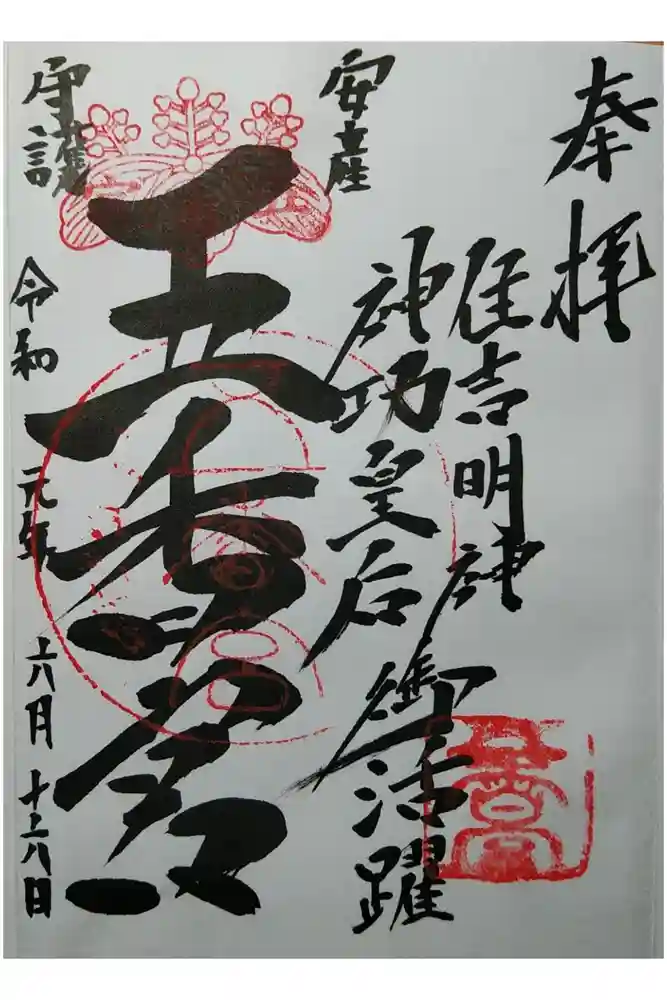 奉拝
住吉明神
神功皇后
御活躍
安産
守護
五香宮
令和元年六月十六日